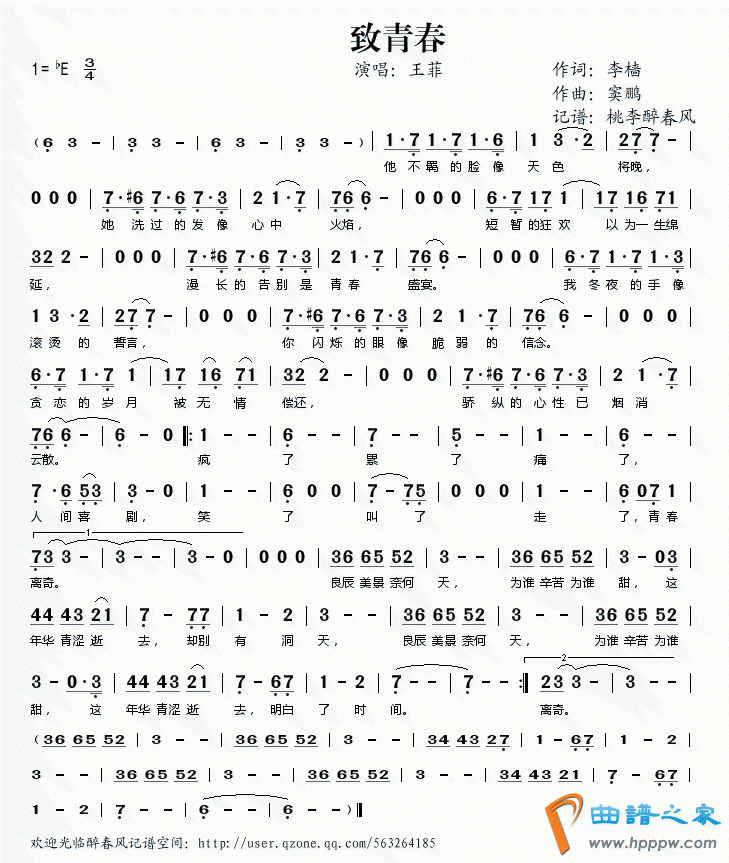 致青春
1= ♭E 3/4 演唱：王菲 作词：李樯
作曲：窦鹏
记谱：桃李醉春风
( 6 3 - | 3 - - | 6 3 - | 3 - - ) | 1·7 1·7 1·6 | 1 3·2 | 27 7 - |
他不羁的脸像 天色 将晚，
0 0 0 | 7·#6 7·6 7·3 | 2 1·7 | 76 6 - | 0 0 0 | 6·7 17 1 | 17 16 71 |
她洗过的发像 心中 火焰， 短暂的狂欢 以为一生绵
32 2 - | 0 0 0 | 7·#6 7·6 7·3 | 2 1·7 | 76 6 - | 0 0 0 | 6·7 1·7 1·3 |
延， 漫长的告别是 青春 盛宴。 我冬夜的手像
1 3·2 | 27 7 - | 0 0 0 | 7·#6 7·6 7·3 | 2 1·7 | 76 6 - | 0 0 0 |
滚烫的 誓言， 你闪烁的眼像 脆弱的 信念。
6·7 1·7 1 | 17 16 71 | 32 2 - | 0 0 0 | 7·#6 7·6 7·3 | 2 1·7 |
贪恋的岁月 被无情 偿还， 骄纵的心性已 烟消
76 6 - | 6 - 0 |: 1 - - | 6 - - | 7 - - | 5 - - | 1 - - | 6 - - |
云散。 疯 了 累 了 痛 了，
7·6 53 | 3 - 0 | 1 - - | 6 0 0 | 7 - 75 | 0 0 0 | 1 - - | 6 07 1 |
人间喜 剧， 笑 了 叫了 走 了，青春
1
73 3 - | 3 - - | 3 - 0 | 0 0 0 | 36 65 52 | 3 - - | 36 65 52 | 3 - 03 |
离奇。 良辰美景奈何 天， 为谁辛苦为谁 甜，这
44 43 21 | 7 - 77 | 1 - 2 | 3 - - | 36 65 52 | 3 - - | 36 65 52 |
年华青涩逝 去，却别 有洞 天， 良辰美景奈何 天， 为谁辛苦为谁
2
3 - 0·3 | 44 43 21 | 7 - 67 | 1 - 2 | 7 - - | 7 - - :| 23 3 - | 3 - - |
甜， 这 年华青涩逝 去，明白 了时 间。 离奇。
( 36 65 52 | 3 - - | 36 65 52 | 3 - - | 34 43 27 | 1 - 67 | 1 - 2 |
3 - - | 36 65 52 | 3 - - | 36 65 52 | 3 - - | 34 43 21 | 7 - 67 |
1 - 2 | 7 - - | 6 - - | 6 - - ) ‖
欢迎光临醉春风记谱空间：http://user.qzone.qq.com/563264185
曲谱之家
www.hppp​w.com